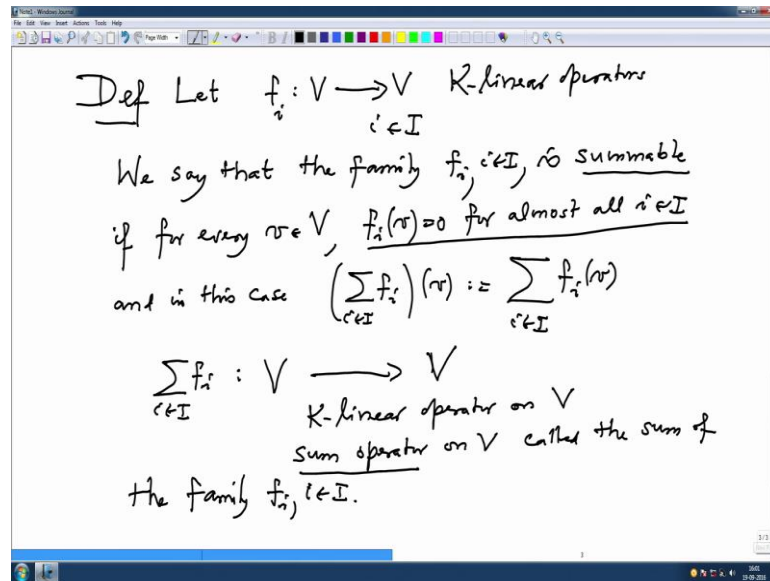 Note1 - Windows Journal
File Edit View Insert Actions Tools Help
Page Width
Def Let f_i : V ⟶ V K-linear operators
i ∈ I
We say that the family f_i, i∈I, is summable
if for every v ∈ V, f_i(v)=0 for almost all i ∈ I
and in this case (∑_{i∈I} f_i)(v) := ∑_{i∈I} f_i(v)
∑_{i∈I} f_i : V ⟶ V
K-linear operator on V
sum operator on V called the sum of
the family f_i, i∈I.
3/3
3
16:01
19-09-2016